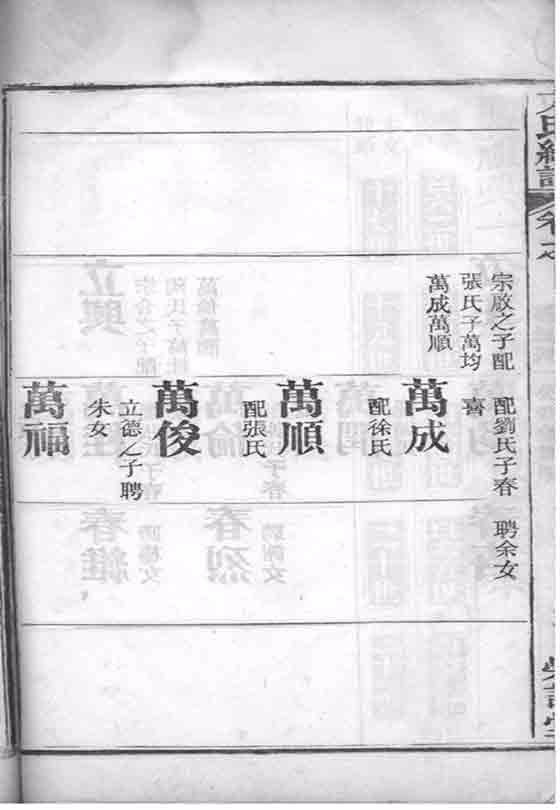 宗啟之子配
張氏子萬均
萬成萬順
配劉氏子春
喜
萬成
配徐氏
萬順
配張氏
萬俊
立德之子聘
朱女
萬福
聘余女